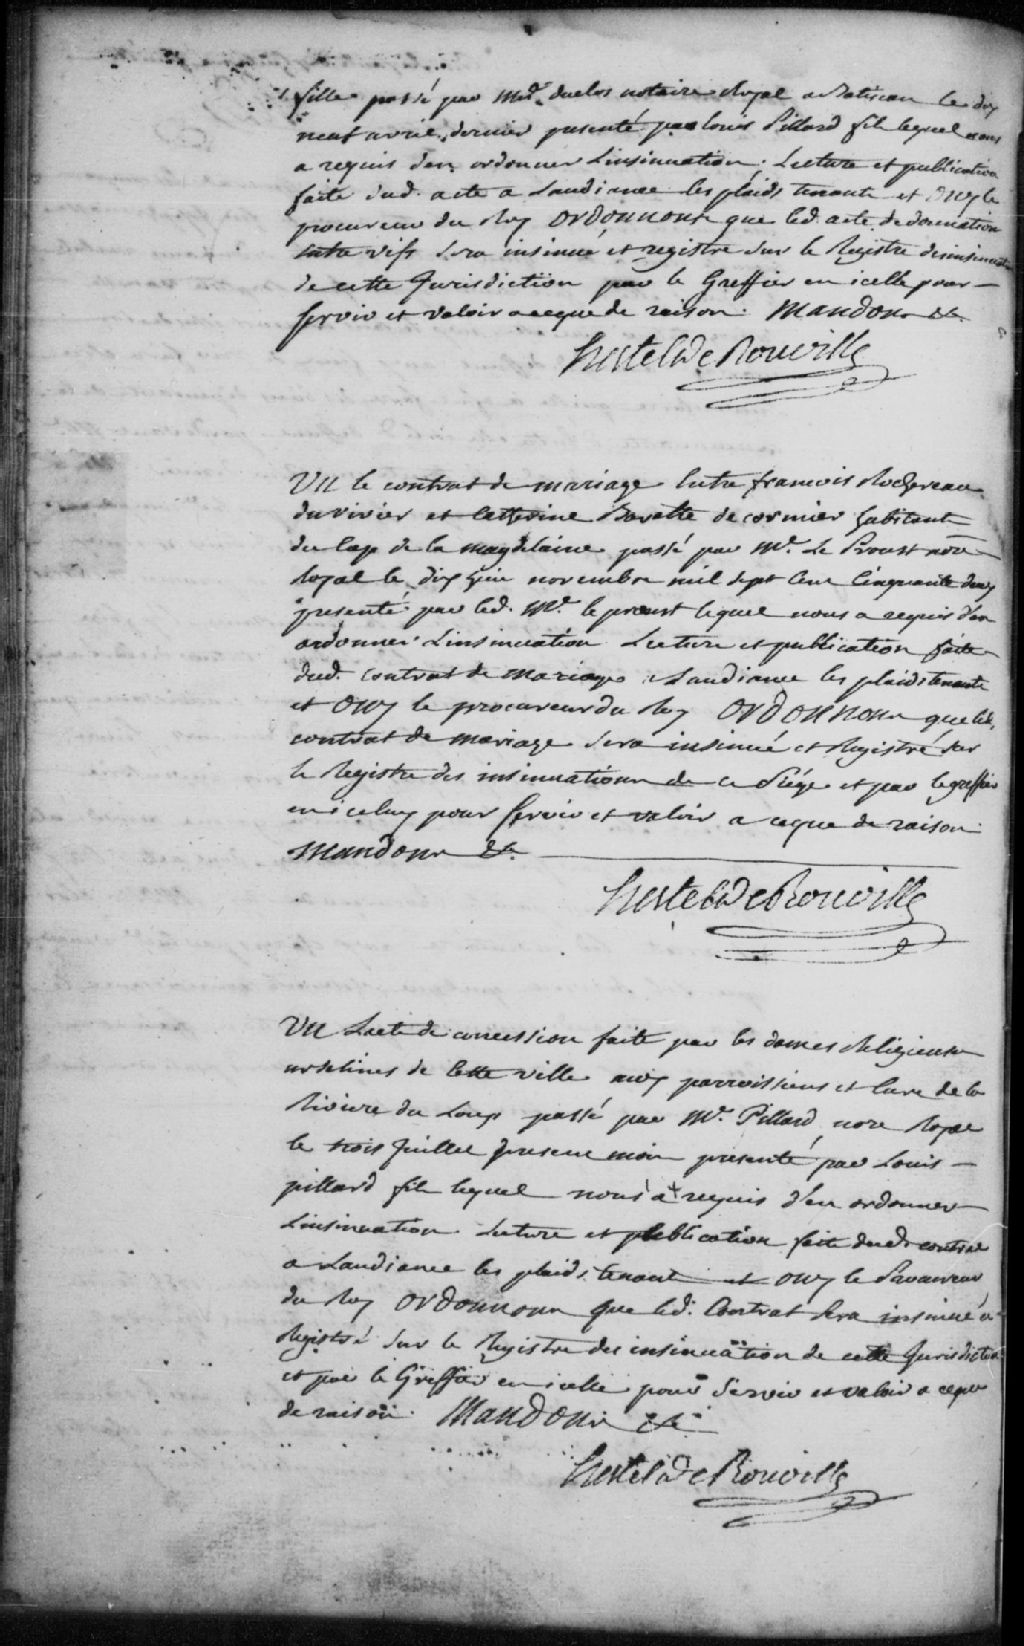 fille passé par Mr. duclos notaire Royal a Batiscan le dix
neuf avril dernier presenté par louis Pillard fils lequel nous
a requis den ordonner Linsinuation. Lecture et publication
faite dud. acte a Laudiance les plaids tenants et Ouy le
procureur du Roy Ordonnons que led. acte de donnation
entre vifs sera insinué et registré sur le Registre desinsinuations
de cette Jurisdiction par le Greffier en icelle pour
servir et valoir aceque de raison. Mandons &c.
hertel De Rouville
VU le contrat de mariage Entre francois Rochereau
duvivier et Catherine Baratte de cormier habitants
du Cap de la magdelaine passé par Mr. Le Proust nore
Royal le dix huit novembre mil sept Cent Cinquante deux
presenté par led. Mr. le proust lequel nous a requis d'en
ordonner Linsinuation Lecture et publication faite
dud. contrat de Mariage a Laudiance les plaids tenants
et Ouy le procureur du Roy Ordonnons que led.
contrat de mariage sera insinué et Registré sur
le Registre des insinuations de ce Siége et par legreffier
en iceluy pour servir et valoir a ceque de raison
Mandons &c.
hertel De Rouville
VU Lacte de concession faite par les dames Religieuses
urselines de Cette ville aux parroissiens et Curé de la
Riviere du Loup passé par Mr. Pillard nore Royal
le trois Juillet present mois presenté par Louis
pillard fils lequel nous a requis d'en ordonner
Linsinuation Lecture et publication faite dud. contrat
a Laudiance les plaids tenant et Ouy le Procureur
du Roy Ordonnons que led. Contrat sera insinué et
Registré sur le Registre des insinuation de cette Jurisdiction
et par le Greffier en icelle pour servir et valoir a ceque
de raison. Mandons &c
hertel De Rouville